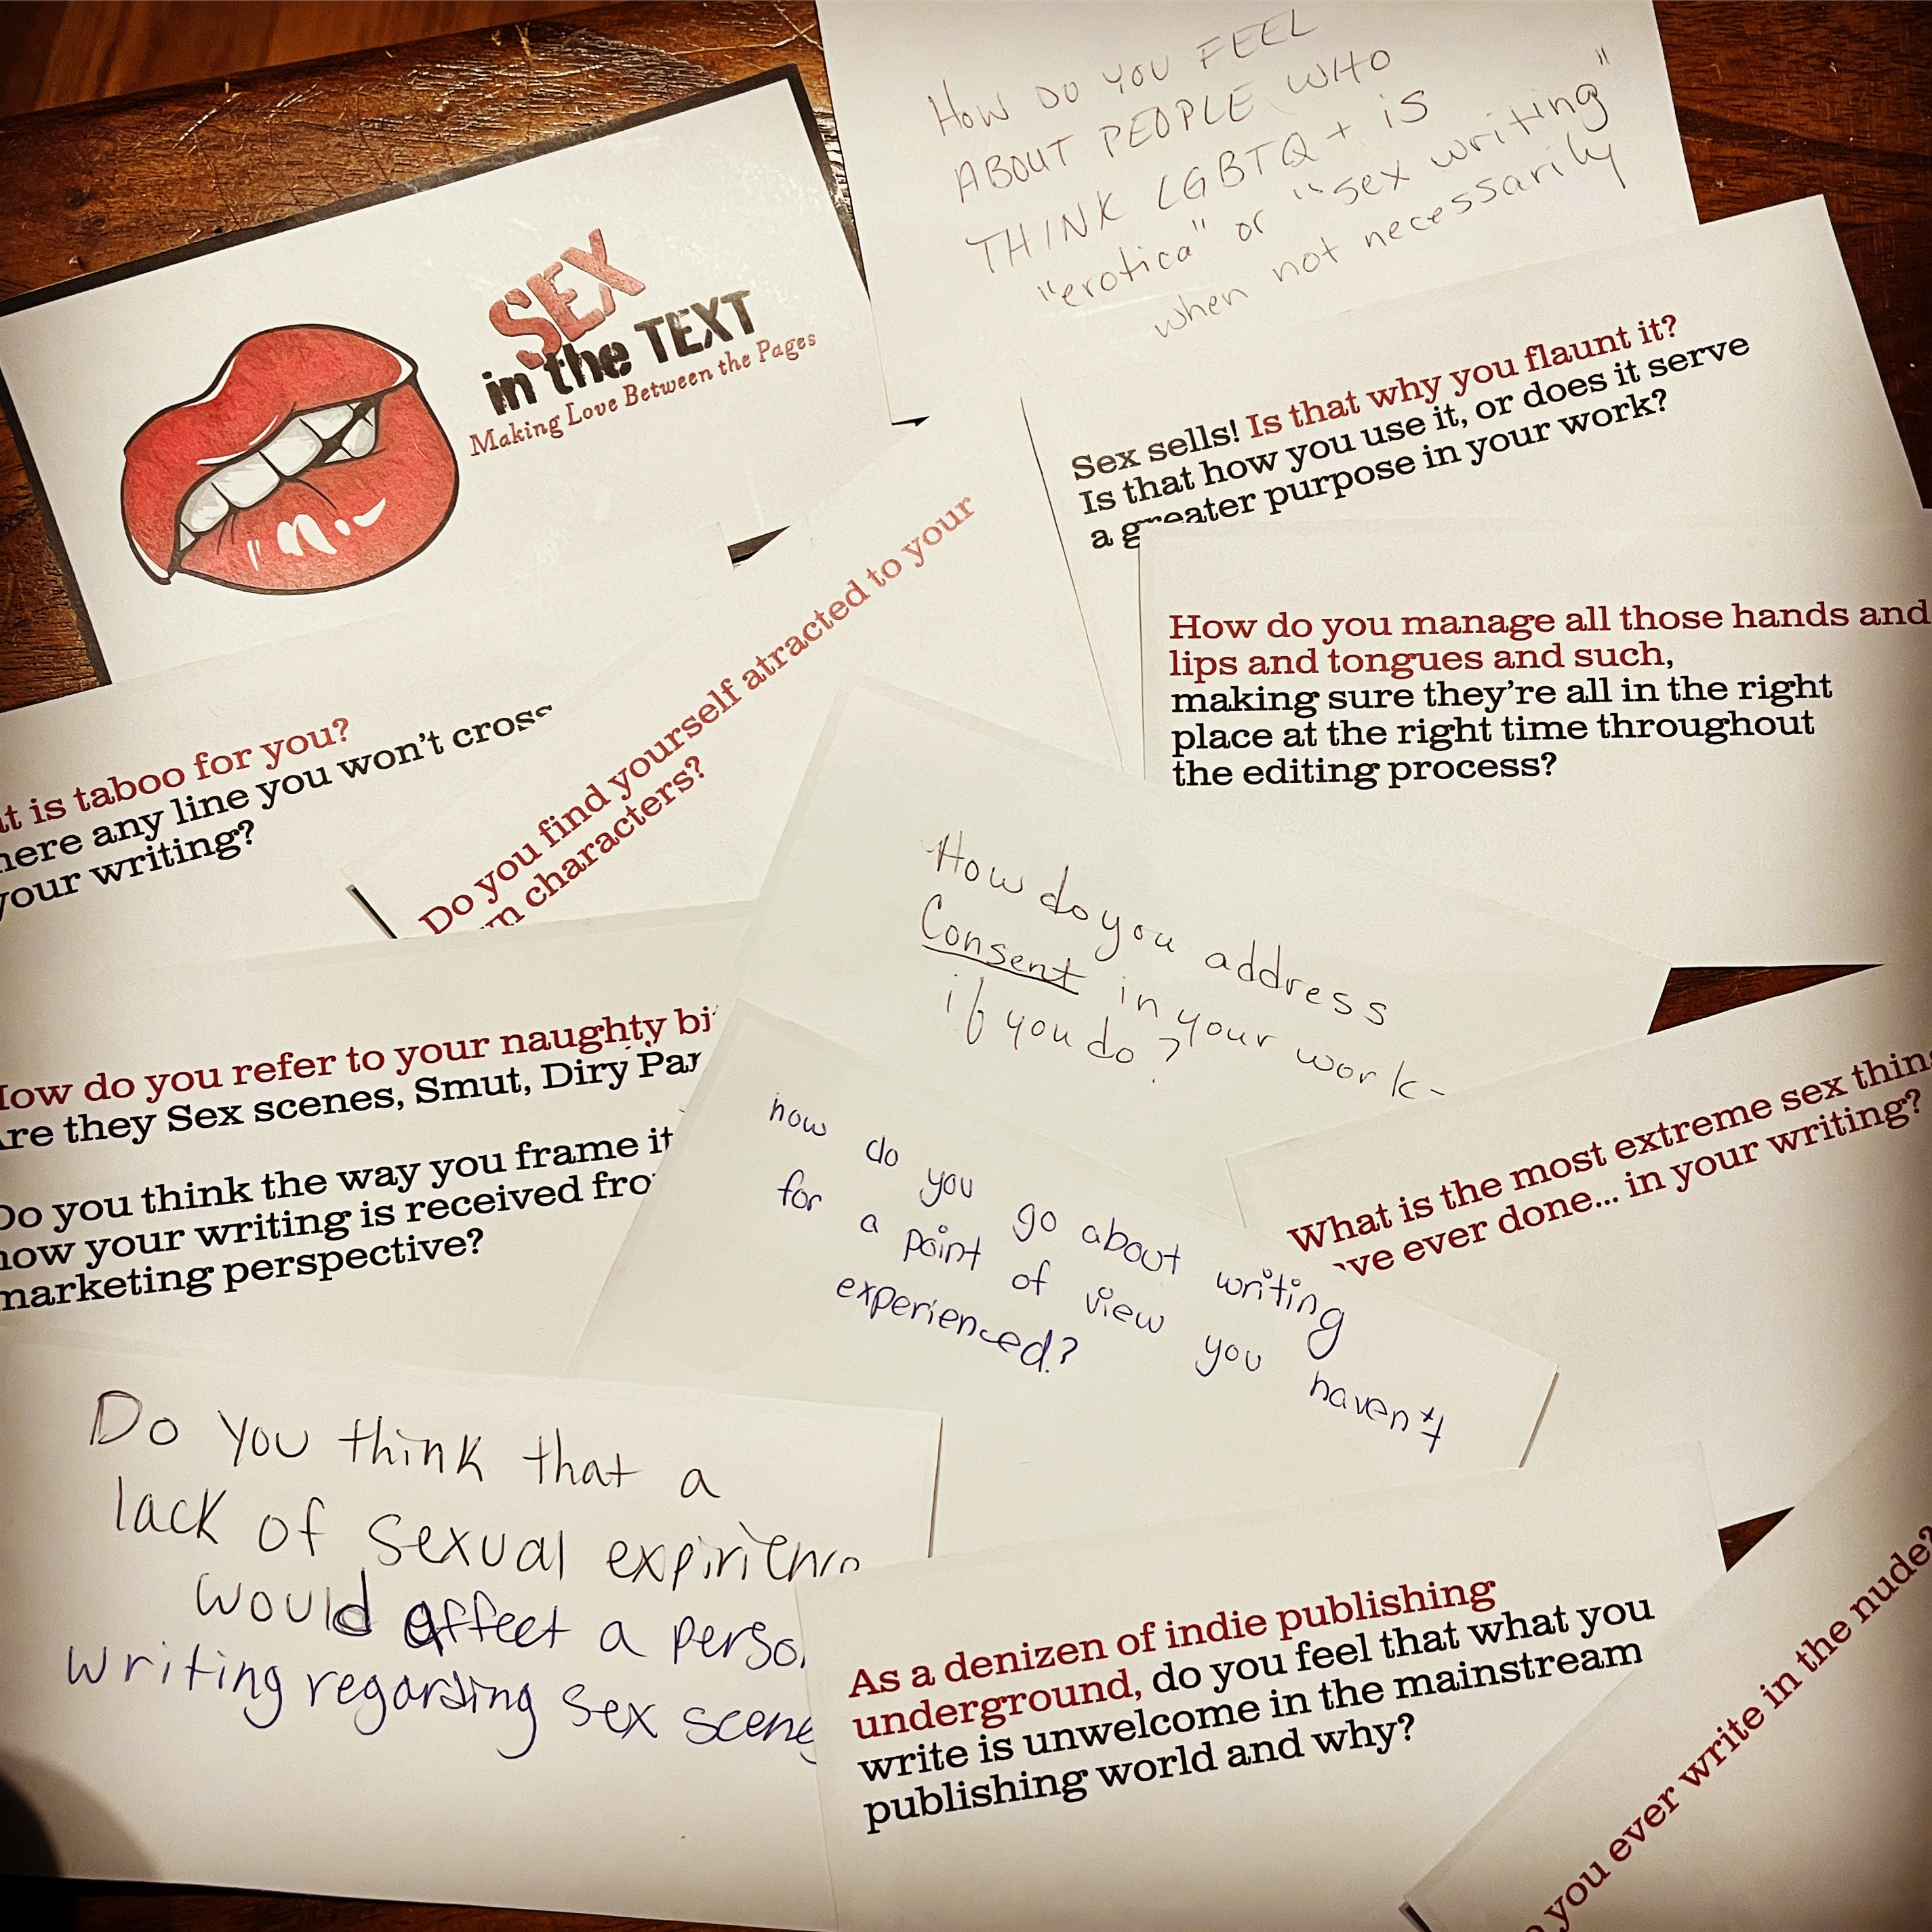 SEX
in the TEXT
Making Love Between the Pages
HOW DO YOU FEEL
ABOUT PEOPLE WHO
THINK LGBTQ+ is
"erotica" or "sex writing"
when not necessarily
Sex sells! Is that why you flaunt it?
Is that how you use it, or does it serve
a greater purpose in your work?
How do you manage all those hands and
lips and tongues and such,
making sure they're all in the right
place at the right time throughout
the editing process?
is taboo for you?
any line you won't cross
your writing?
Do you find yourself atracted to your
characters?
How do you address
Consent in your work-
if you do?
How do you refer to your naughty
Are they Sex scenes, Smut, Diry
Do you think the way you frame it
how your writing is received
marketing perspective?
how do you go about writing
for a point of view you haven't
experienced?
What is the most extreme sex
ever done... in your writing?
Do you think that a
lack of sexual
would affect a
writing regarding sex
As a denizen of indie publishing
underground, do you feel that what you
write is unwelcome in the mainstream
publishing world and why?
you ever write in the nude?